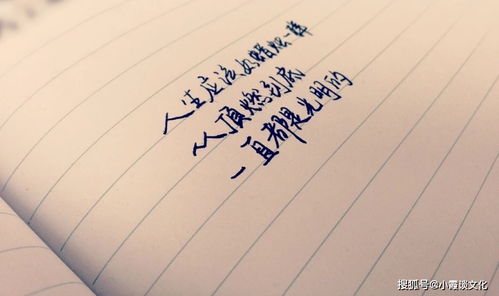 人生应该如蜡烛一样
从顶燃到底
一直都是光明的
搜狐号@小霞谈文化